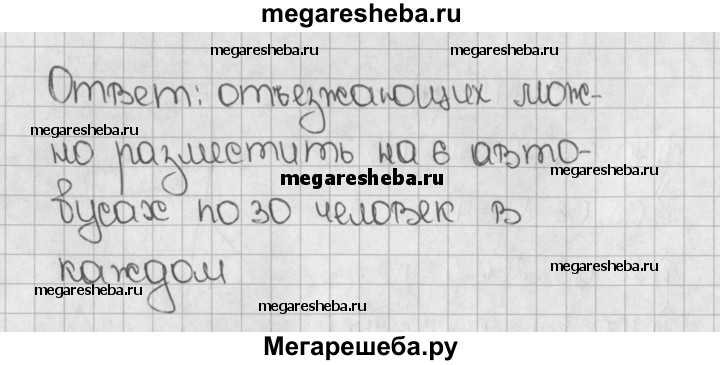 megaresheba.ru
megaresheba.ru megaresheba.ru
Ответ: отъезжающих мож-
megaresheba.ru
но разместить на 6 авто-
megaresheba.ru
бусах по 30 человек в
каждом
megaresheba.ru
megaresheba.ru
megaresheba.ru
Мегарешеба.ру